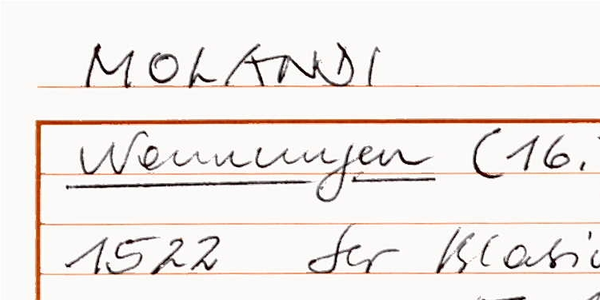 MOLANDI
Wennungen (16.
1522 der Blasi